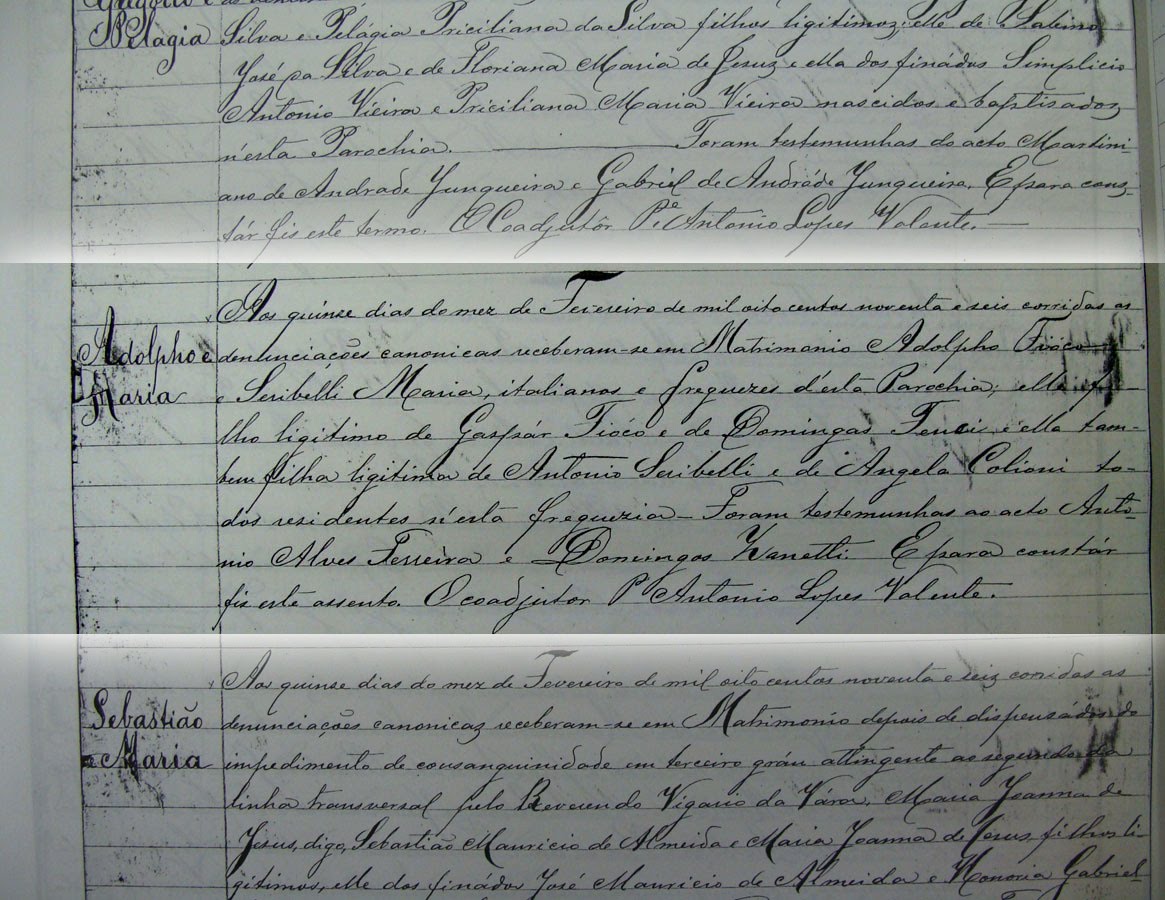 Gregorio e
Pelagia
Silva e Pelágia Priciliana da Silva filhos ligitimoz; elle de Sabino
José da Silva e de Floriana Maria de Jesuz e ella dos finádos Simplicio
Antonio Vieira e Priciliana Maria Vieira nascidos e baptisados
n'esta Parochia. Foram testemunhas do acto Martini-
ano de Andrade Junqueira e Gabriel de Andráde Junqueira. E para conz-
tár fis este termo. O Coadjutôr Pe. Antonio Lopes Valente.
Adolpho e
Maria
Aos quinse dias do mez de Fevereiro de mil oito centos noventa e seis corridas as
denunciações canonicas receberam-se em Matrimonio Adolpho Fióco
e Seribelli Maria, italianos e freguezes d'esta Parochia; elle fi-
lho ligitimo de Gaspár Fióco e de Domingas e ella tam-
bem filha ligitima de Antonio Seribelli e de Angela Colioni to-
dos residentes n'esta freguezia — Foram testemunhas ao acto Anto-
nio Alves Ferreira e Domingos Zanetti. E para constár
fis este assento. O coadjutor P. Antonio Lopes Valente.
Sebastião
e Maria
Aos quinse dias do mez de Fevereiro de mil oito centos noventa e seiz corridas as
denunciações canonicaz receberam-se em Matrimonio depois de dispensádos do
impedimento de consanguinidade em terceiro gráu attingente ao segundo da
linha transversal pelo Reverendo Vigario da Vára, Maria Joanna de
Jesus, digo, Sebastião Mauricio de Almeida e Maria Joanna de Jesus, filhos li-
gitimos, elle dos finádos José Mauricio de Almeida e Honoria Gabriel-